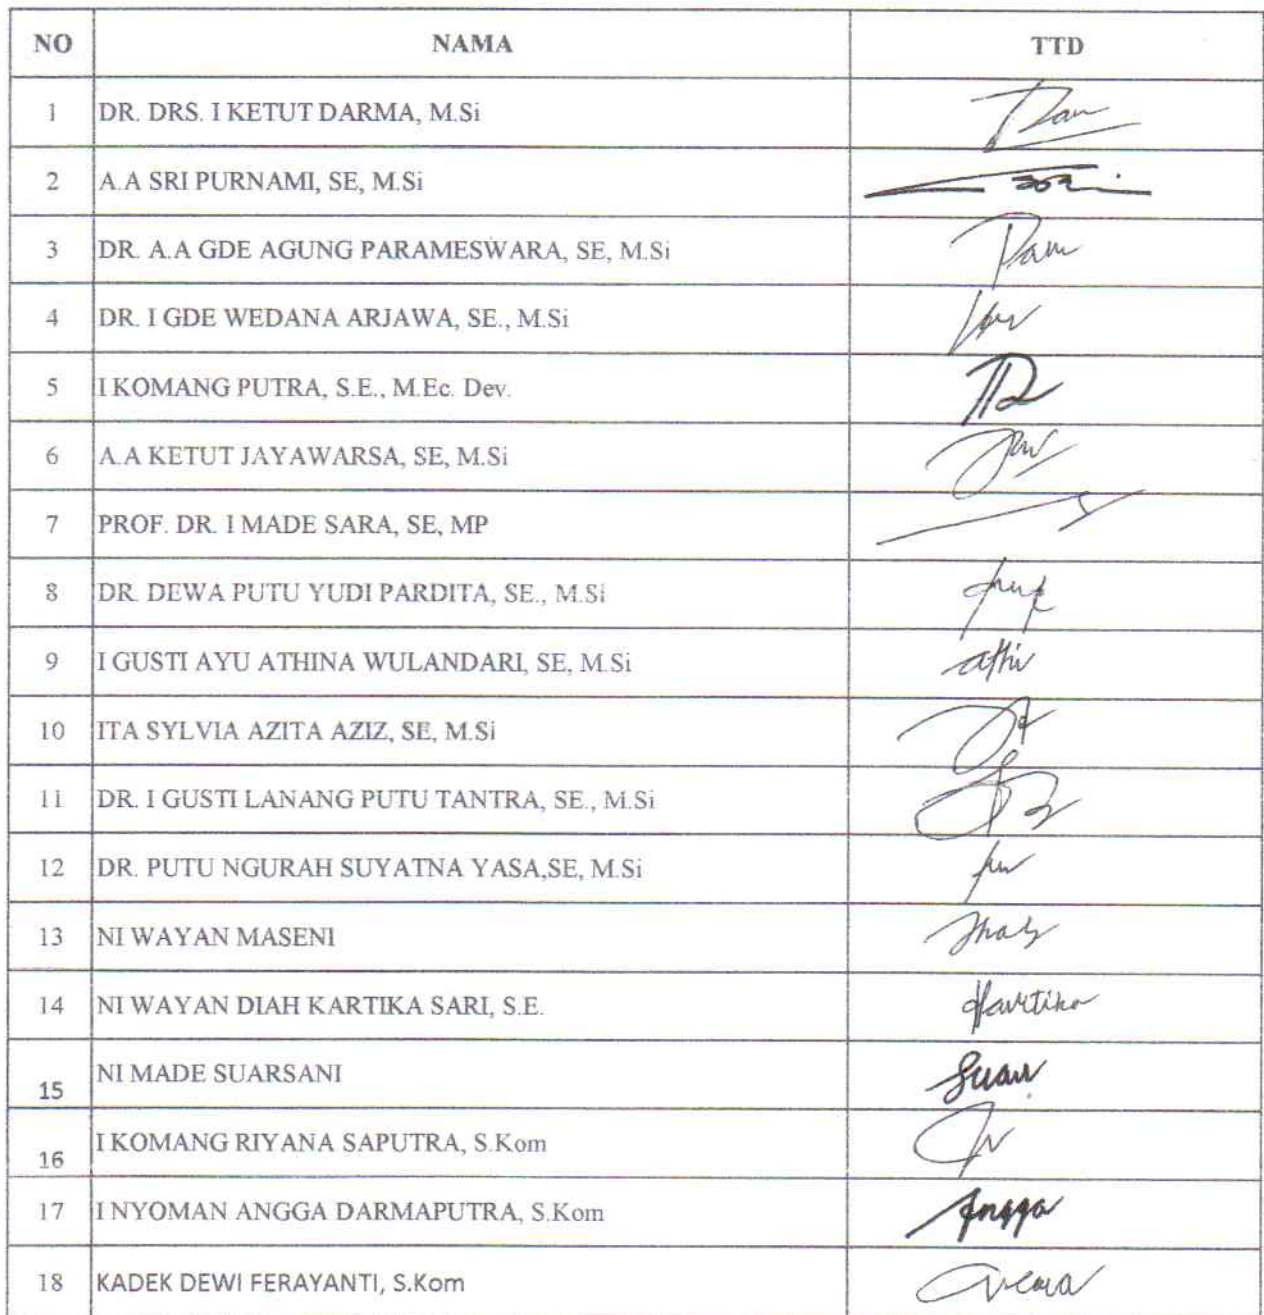 NO NAMA TTD
1 DR. DRS. I KETUT DARMA, M.Si
2 A.A SRI PURNAMI, SE, M.Si
3 DR. A.A GDE AGUNG PARAMESWARA, SE, M.Si
4 DR. I GDE WEDANA ARJAWA, SE., M.Si
5 I KOMANG PUTRA, S.E., M.Ec. Dev.
6 A.A KETUT JAYAWARSA, SE, M.Si
7 PROF. DR. I MADE SARA, SE, MP
8 DR. DEWA PUTU YUDI PARDITA, SE., M.Si
9 I GUSTI AYU ATHINA WULANDARI, SE, M.Si
10 ITA SYLVIA AZITA AZIZ, SE, M.Si
11 DR. I GUSTI LANANG PUTU TANTRA, SE., M.Si
12 DR. PUTU NGURAH SUYATNA YASA,SE, M.Si
13 NI WAYAN MASENI
14 NI WAYAN DIAH KARTIKA SARI, S.E. Kartika
15 NI MADE SUARSANI
16 I KOMANG RIYANA SAPUTRA, S.Kom
17 I NYOMAN ANGGA DARMAPUTRA, S.Kom Angga
18 KADEK DEWI FERAYANTI, S.Kom